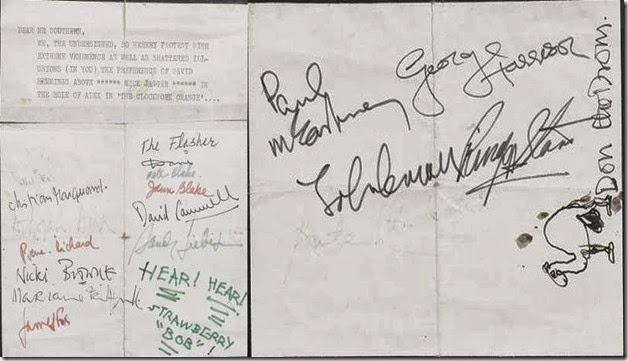 DEAR MR SOUTHERN,
WE, THE UNDERSIGNED, DO HEREBY PROTEST WITH
EXTREME VEHEMENCE AS WELL AS SHATTERED ILL-
USIONS (IN YOU) THE PREFERENCE OF DAVID
HEMMINGS ABOVE ****** MICK JAGGER ****** IN
THE ROLE OF ALEX IN 'THE CLOCKWORK ORANGE'....
Christian Marquand
Richard
Nicki BROWNE
Marianne Faithfull
James Fox
The Flasher
Peter Blake
Jann Blake
David Cammell
Sandy Lieberson
HEAR! HEAR!
STRAWBERRY
"BOB"!
Paul
McCartney
George
Harrison
John Lennon
Ringo Starr
Don